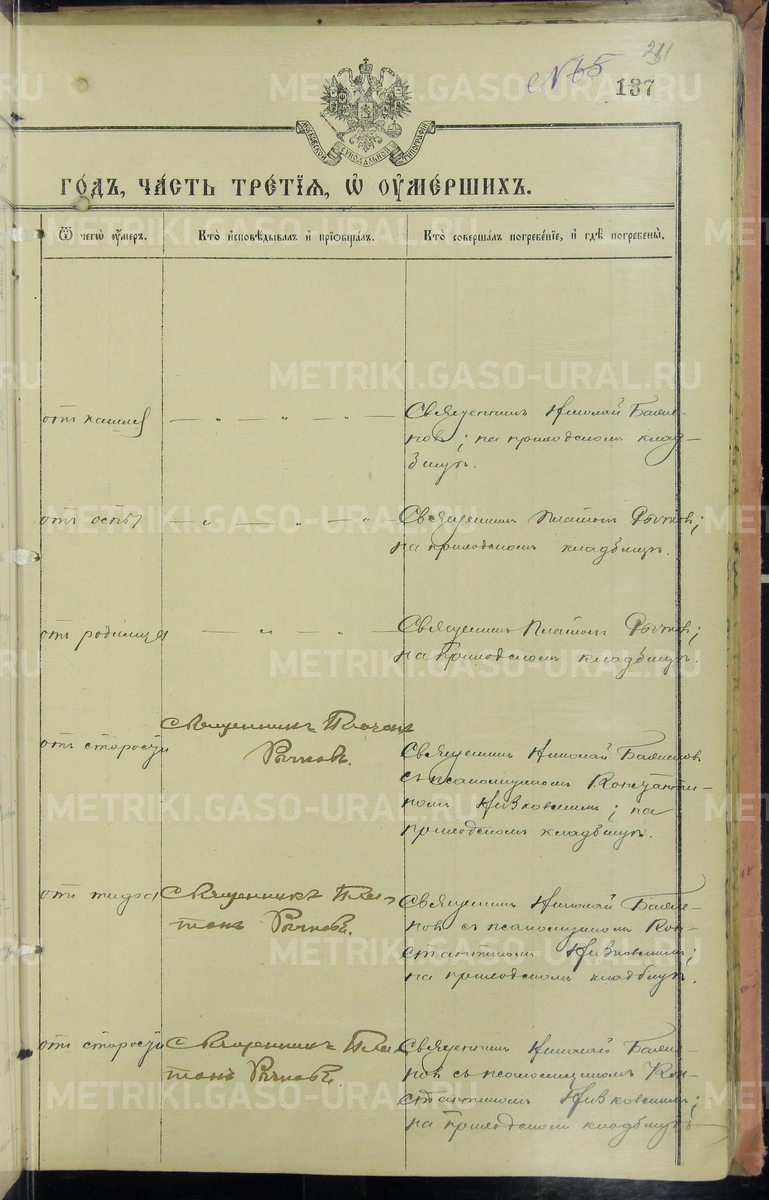 № 65
231
137
МОСКОВСКОЙ СѴНОДАЛЬНОЙ ТИПОГРАФІИ
ГО́ДЪ, ЧА́СТЬ ТРЕ́ТІѦ, Ѡ҆ ОУ҆МЕ́РШИХЪ.
Ѿ чегѡ̀ оу҆́меръ.
Кто̀ и҆сповѣ́дывалъ и҆ прїѡбща́лъ.
Кто̀ соверша́лъ погребе́нїе, и҆ гдѣ̀ погребены̀.
отъ кашля
— „ — „ — „ —
Священникъ Николай Баяно-
новъ; на приходскомъ клад-
бищѣ.
отъ оспы
— „ — „ — „ —
Священникъ Платонъ Рычковъ;
на приходскомъ кладбищѣ.
отъ родимца
— „ — „ —
Священникъ Платонъ Рычковъ;
на приходскомъ кладбищѣ.
отъ старости
Священникъ Платонъ
Рычковъ.
Священникъ Николай
съ псаломщикомъ Константи-
номъ; на
приходскомъ кладбищѣ.
отъ тифа
Священникъ Пла-
тонъ Рычковъ.
Священникъ Николай
съ псаломщикомъ Кон-
стантиномъ;
на приходскомъ кладбищѣ.
отъ старости
Священникъ Пла-
тонъ Рычковъ.
Священникъ Николай
съ псаломщикомъ Кон-
стантиномъ;
на приходскомъ кладбищѣ
METRIKI.GASO-URAL.RU